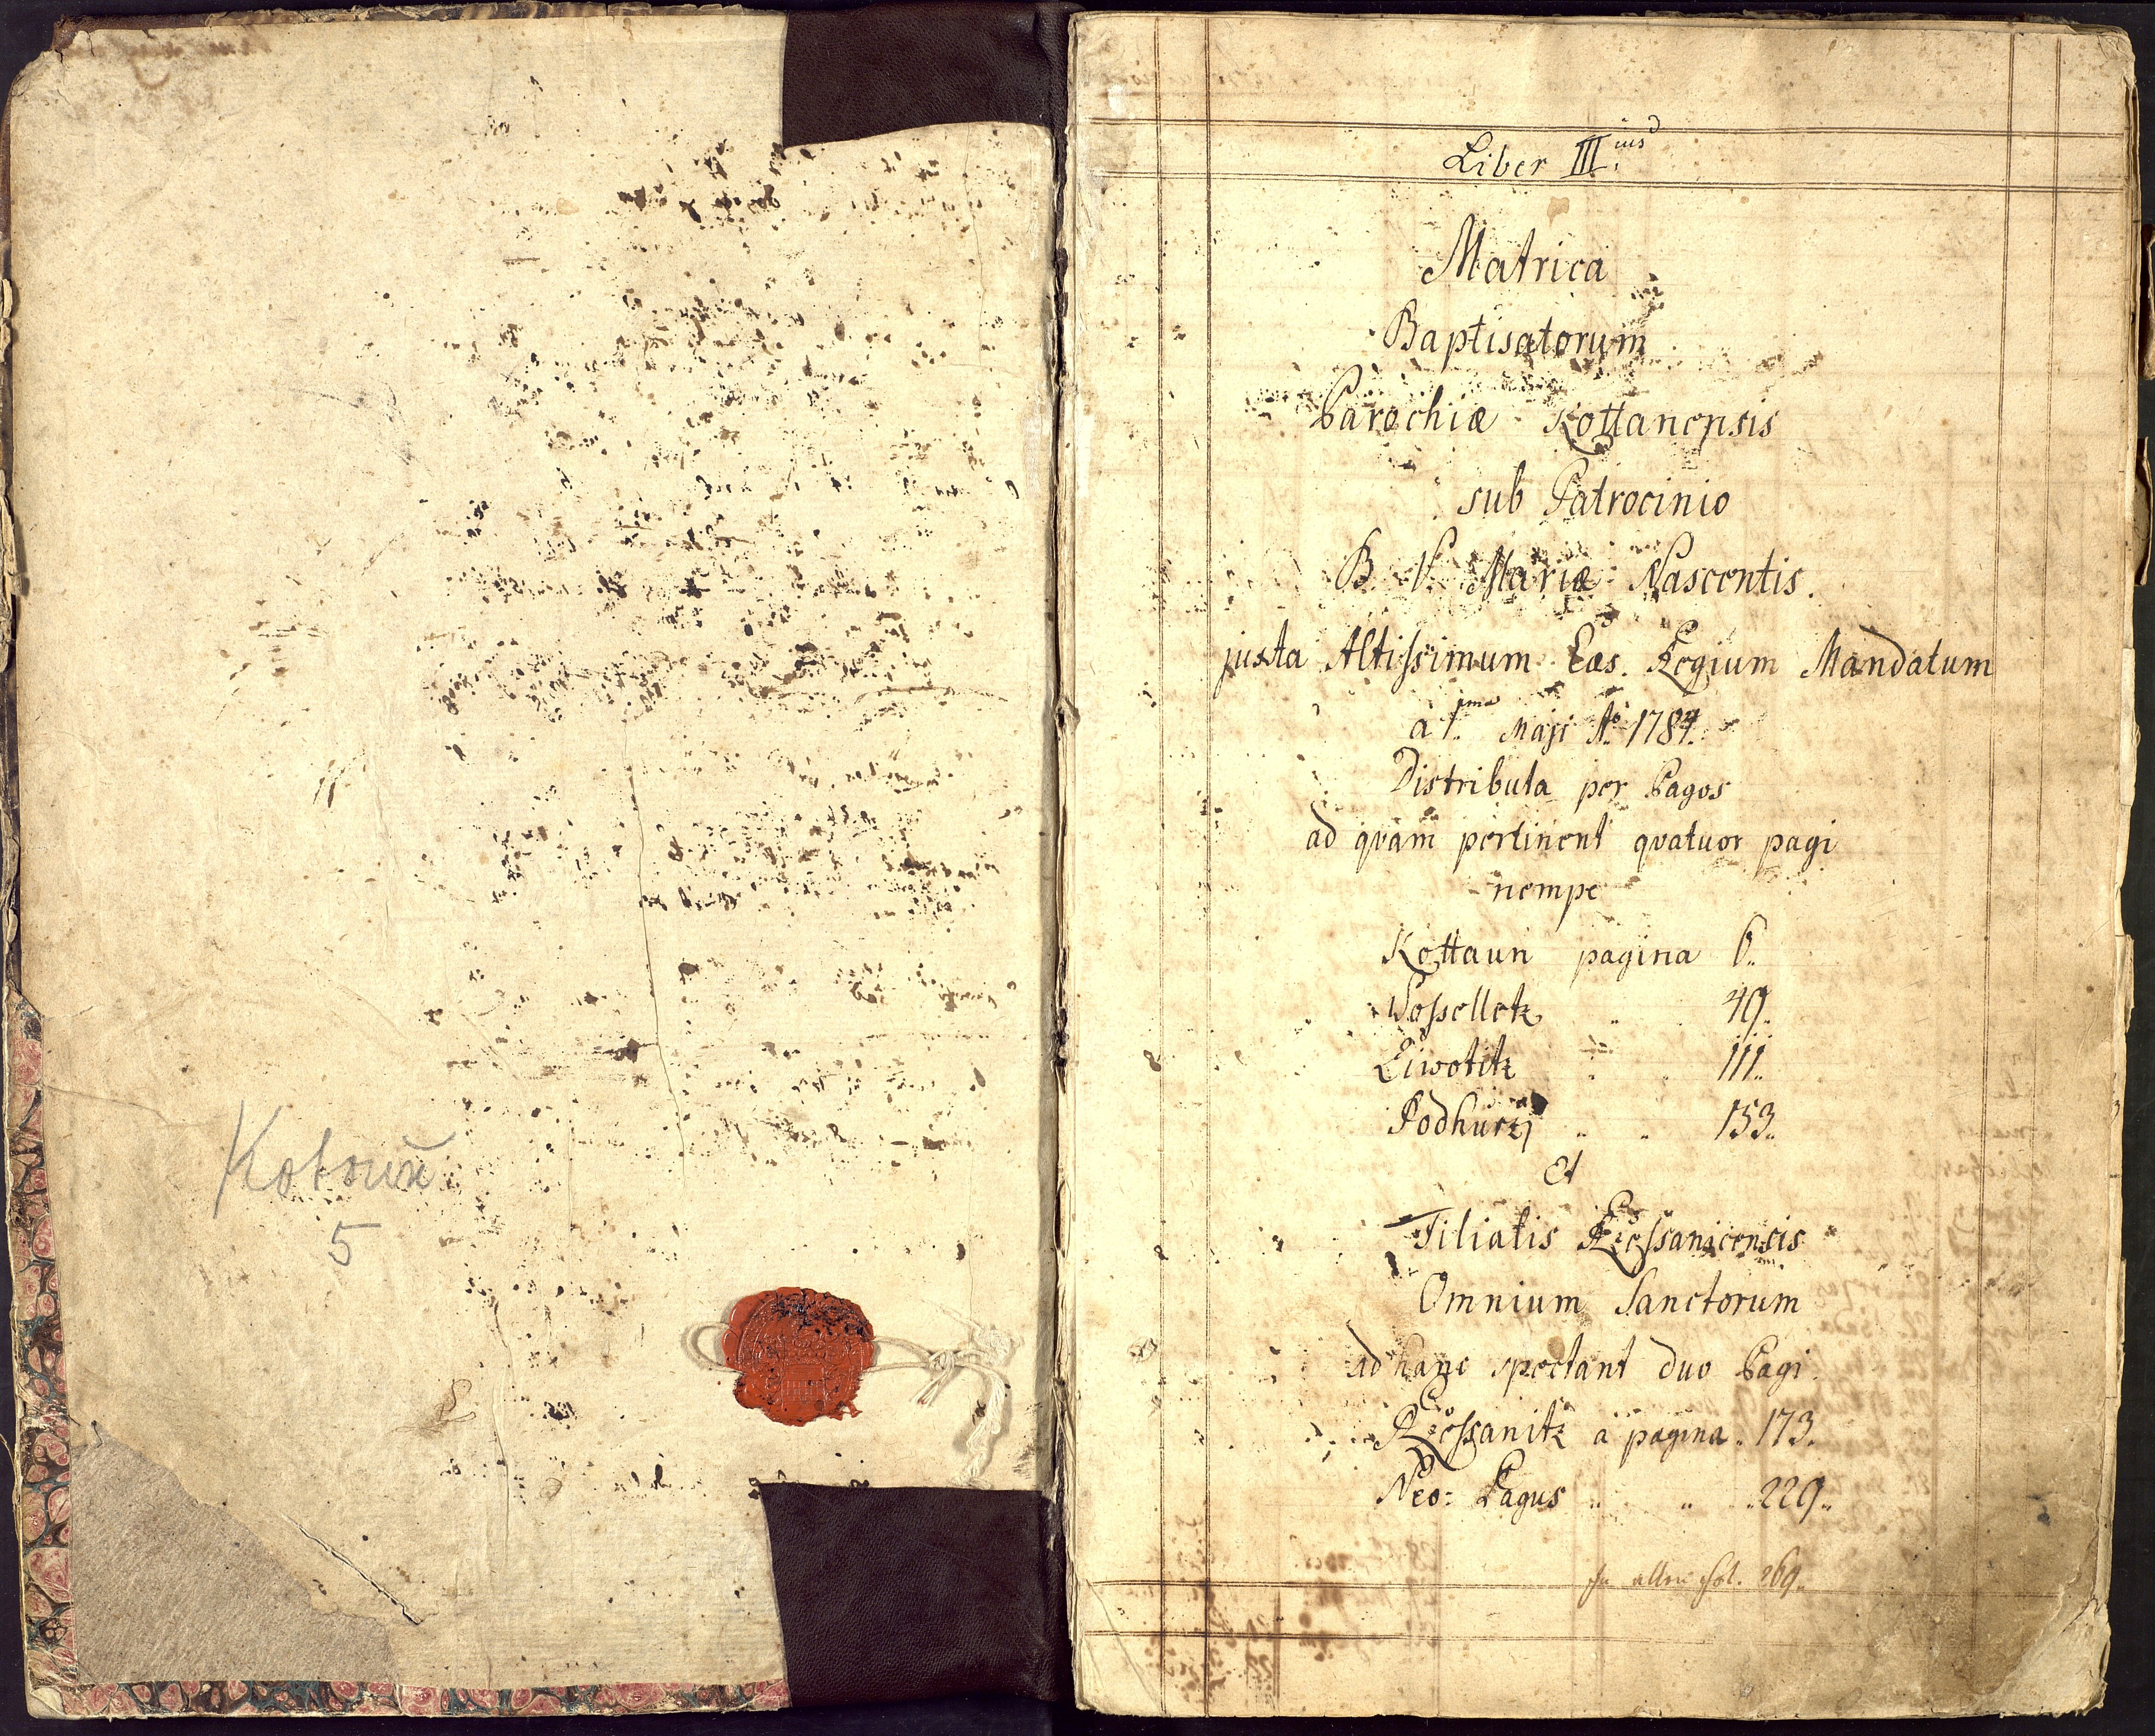 Kotouň
5
Liber III.ius
Matrica
Baptisatorum
Parochiæ Kottanensis
sub Patrocinio
B. V. Mariæ Nascentis.
juxta Altissimum Cæs. Regium Mandatum
a 1.ma Maji Ao 1784.
Distributa per Pagos
ad qvam pertinent qvatuor pagi
nempe
Kottaun pagina 6..
Wosselletz . . 49..
Ziwotitz . . 111..
Podhurzj .. . 153..
Et
Filialis Rzessanicensis
Omnium Sanctorum
ad hanc spectant duo Pagi
Rzessanitz a pagina . 173.
Neo: Pagus .. .. .. 229..
fol. 269..